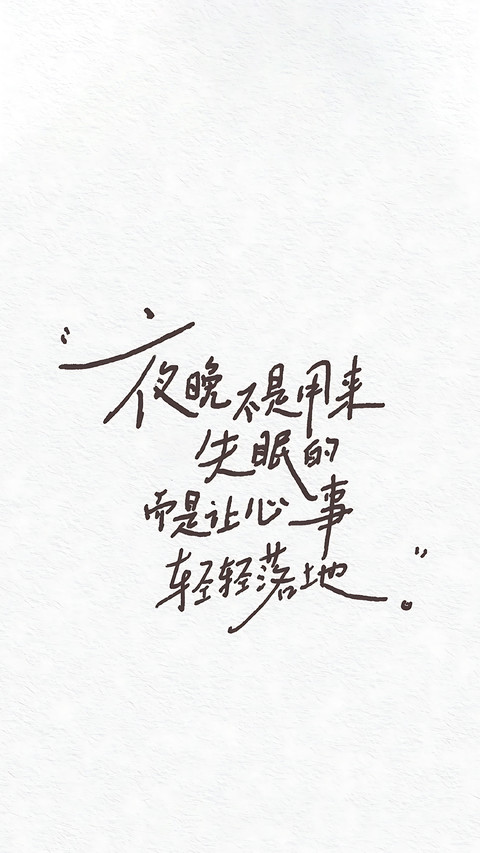 “夜晚不是用来
失眠的
而是让心事
轻轻落地。”